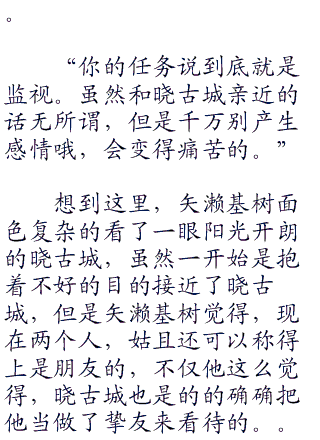 。
“你的任务说到底就是
监视。虽然和晓古城亲近的
话无所谓，但是千万别产生
感情哦，会变得痛苦的。”
想到这里，矢濑基树面
色复杂的看了一眼阳光开朗
的晓古城，虽然一开始是抱
着不好的目的接近了晓古
城，但是矢濑基树觉得，现
在两个人，姑且还可以称得
上是朋友的，不仅他这么觉
得，晓古城也是的的确确把
他当做了挚友来看待的。。